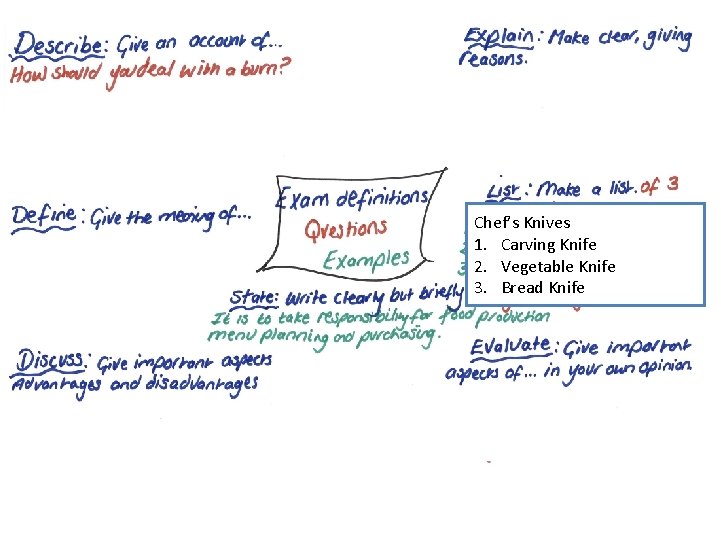 Describe: Give an account of...
How should you deal with a burn?
Explain: Make clear, giving
reasons.
Define: Give the meaning of...
Exam definitions
Questions
Examples
List: Make a list. of 3
Chef's Knives
1. Carving Knife
2. Vegetable Knife
3. Bread Knife
State: Write clearly but briefly
It is to take responsibility for food production
menu planning and purchasing.
Discuss: Give important aspects
Advantages and disadvantages
Evaluate: Give important
aspects of... in your own opinion.